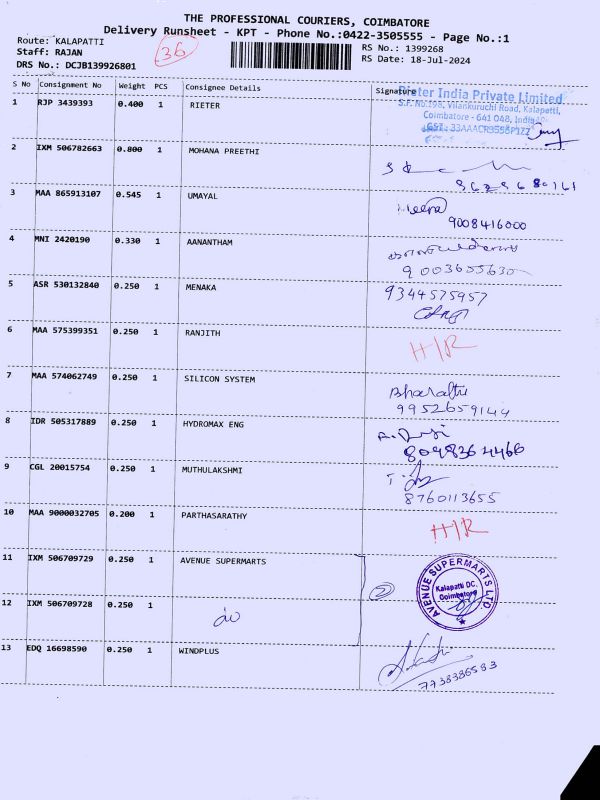 THE PROFESSIONAL COURIERS, COIMBATORE
Delivery Runsheet - KPT - Phone No.:0422-3505555 - Page No.:1
Route: KALAPATTI
Staff: RAJAN
DRS No.: DCJB139926801
36
RS No.: 1399268
RS Date: 18-Jul-2024
S No Consignment No Weight PCS Consignee Details Signature
Rieter India Private Limited
S.F. No.198, Vilankuruchi Road, Kalapatti,
Coimbatore - 641 048, India
GST: 33AAACR3598P1ZZ
1 RJP 3439393 0.400 1 RIETER
2 IXM 506782663 0.800 1 MOHANA PREETHI
3 MAA 865913107 0.545 1 UMAYAL
Meena
9008416000
4 MNI 2420190 0.330 1 AANANTHAM
9003655630
5 ASR 530132840 0.250 1 MENAKA
9344575957
6 MAA 575399351 0.250 1 RANJITH
H/R
7 MAA 574062749 0.250 1 SILICON SYSTEM
Bharathi
9952659144
8 IDR 505317889 0.250 1 HYDROMAX ENG
8098364466
9 CGL 20015754 0.250 1 MUTHULAKSHMI
8760113655
10 MAA 9000032705 0.200 1 PARTHASARATHY
H/R
11 IXM 506709729 0.250 1 AVENUE SUPERMARTS
2
AVENUE SUPERMARTS LTD.
Kalapatti DC.
Coimbatore
12 IXM 506709728 0.250 1 do
13 EDQ 16698590 0.250 1 WINDPLUS
7738386583